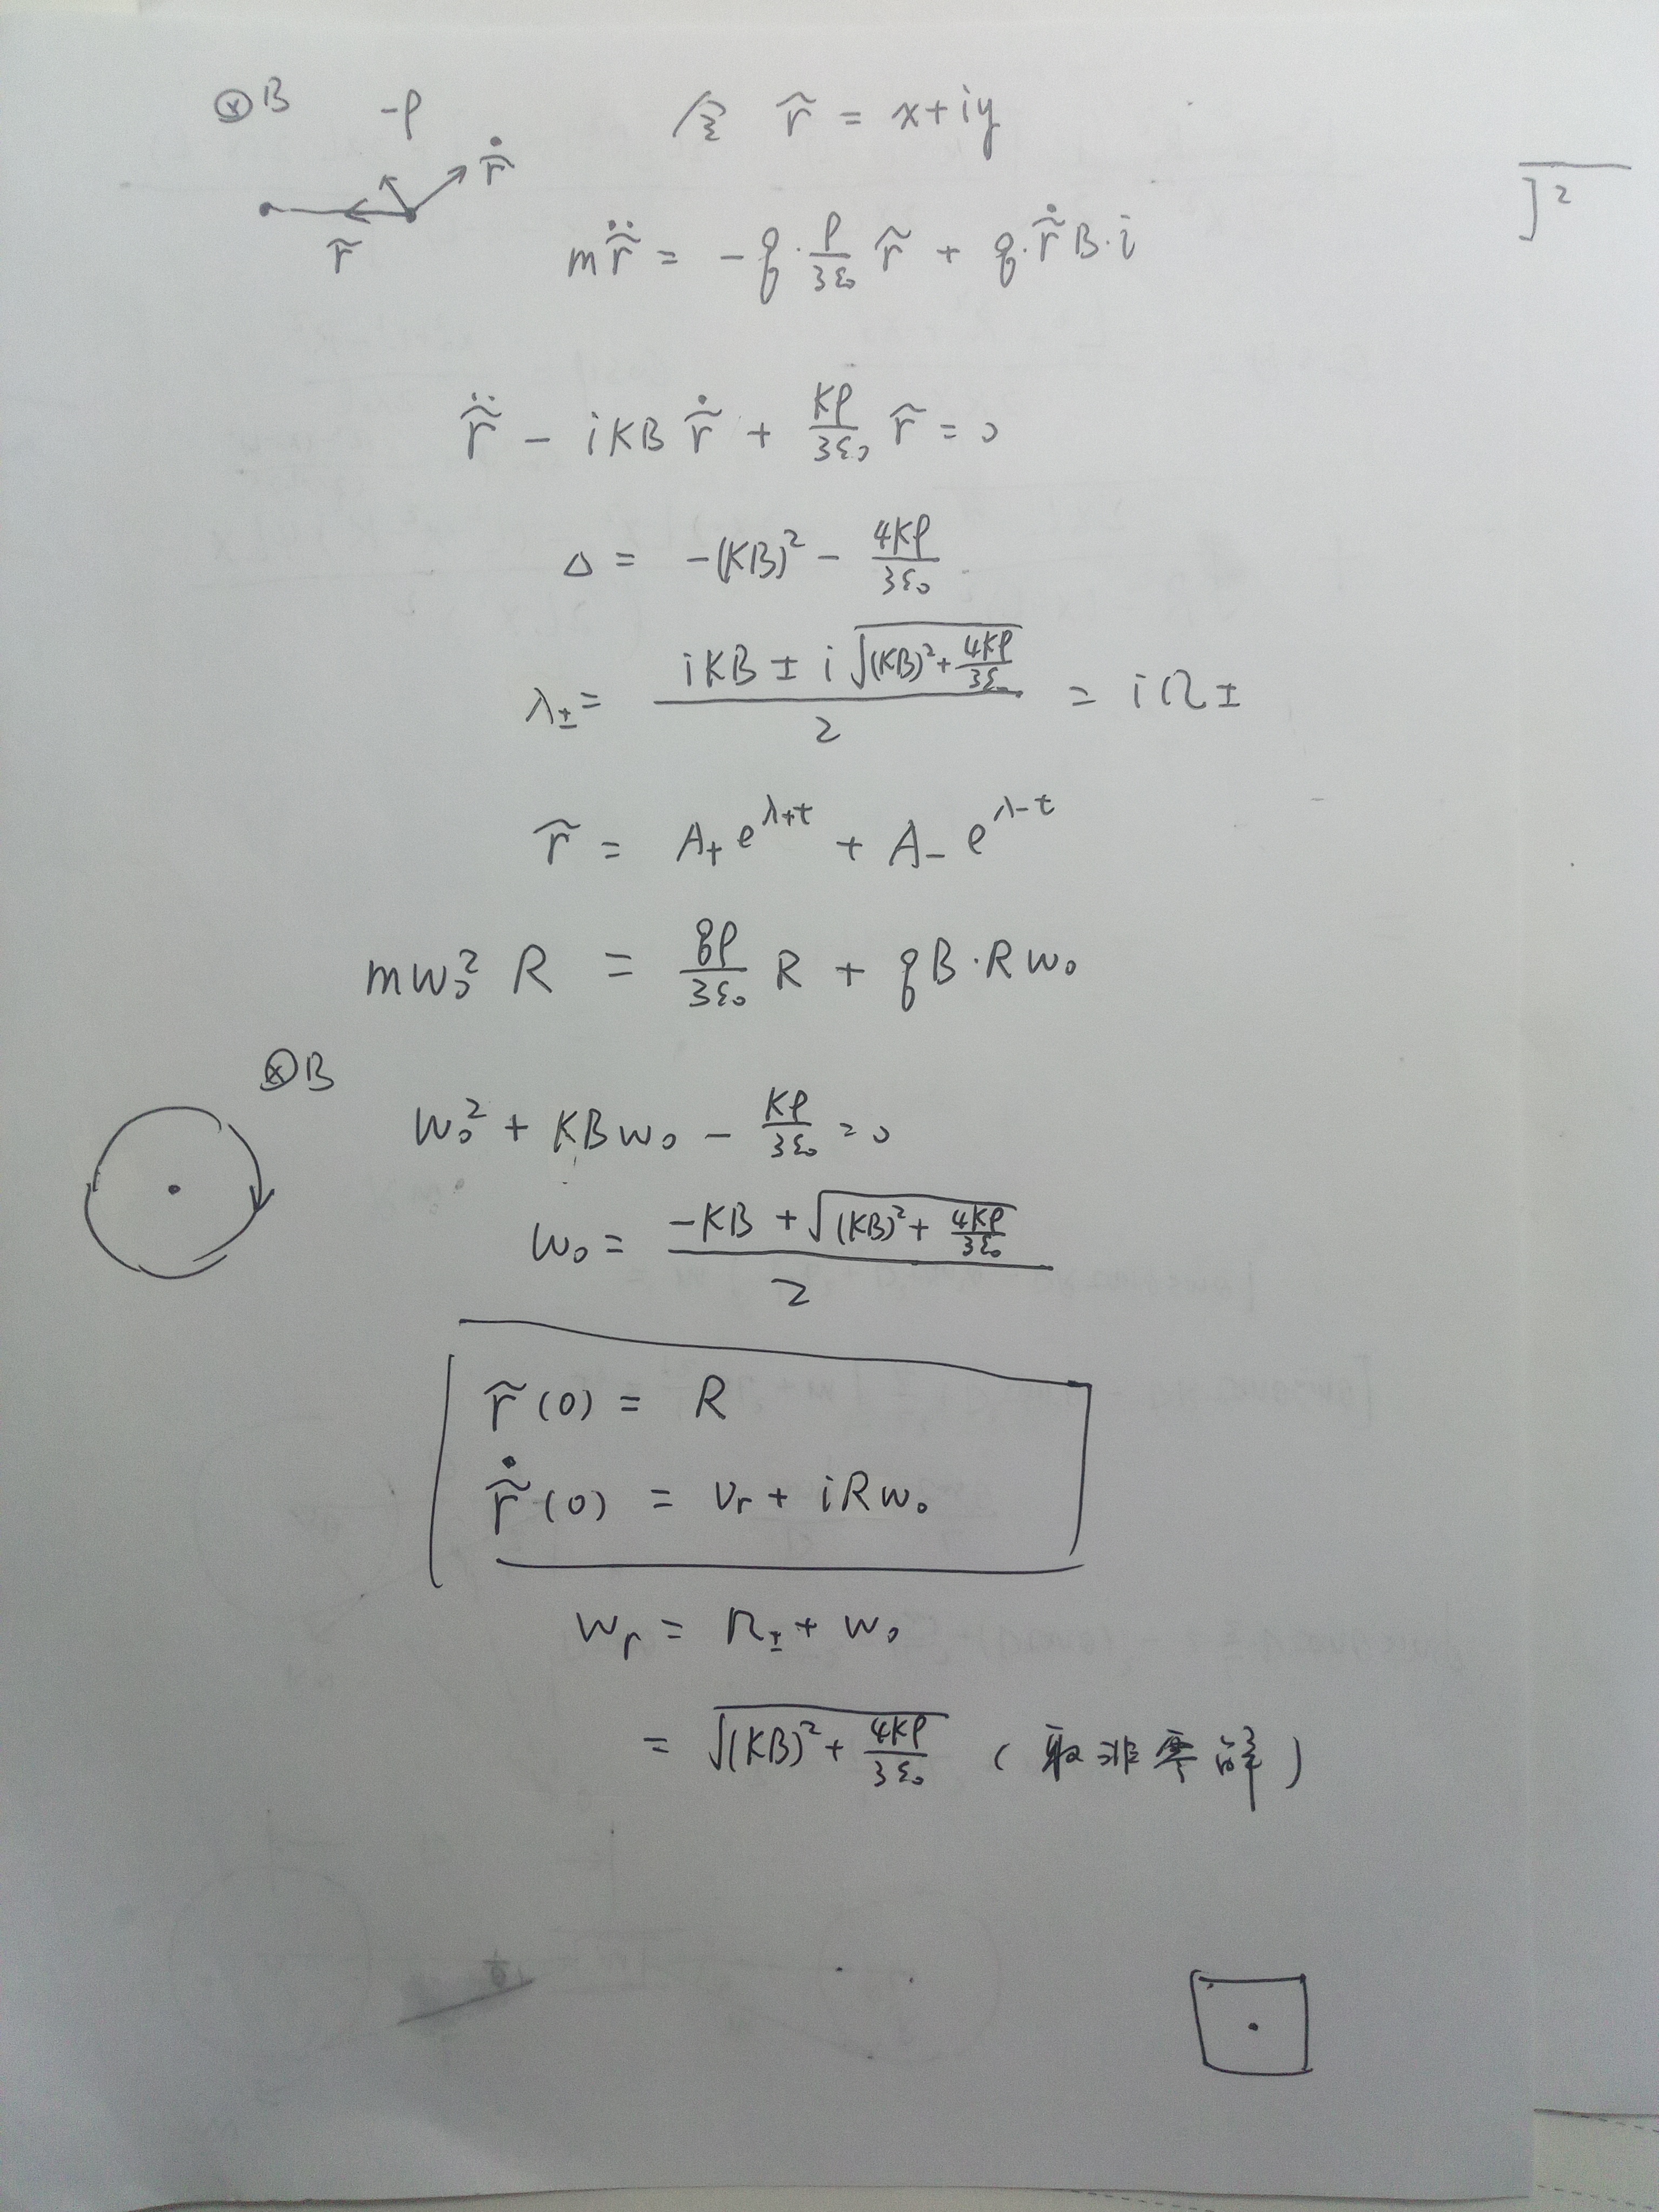 ⊗B -ρ 令 r̃ = x+iy
r̃̇
]²
r̃
m r̃̈ = -q·ρ/3ε₀ r̃ + q·r̃̇ B·i
r̃̈ - iKB r̃̇ + Kρ/3ε₀ r̃ = 0
Δ = -(KB)² - 4Kρ/3ε₀
λ± = (iKB ± i√((KB)² + 4Kρ/3ε₀))/2 = iΩ±
r̃ = A₊e^(λ₊t) + A₋e^(λ₋t)
mw₀² R = qρ/3ε₀ R + qB·Rw₀
⊗B
w₀² + KBw₀ - Kρ/3ε₀ = 0
w₀ = (-KB + √((KB)² + 4Kρ/3ε₀))/2
r̃(0) = R
r̃̇(0) = vr + iRw₀
wr = Ω± + w₀
= √((KB)² + 4Kρ/3ε₀) (取非零解)